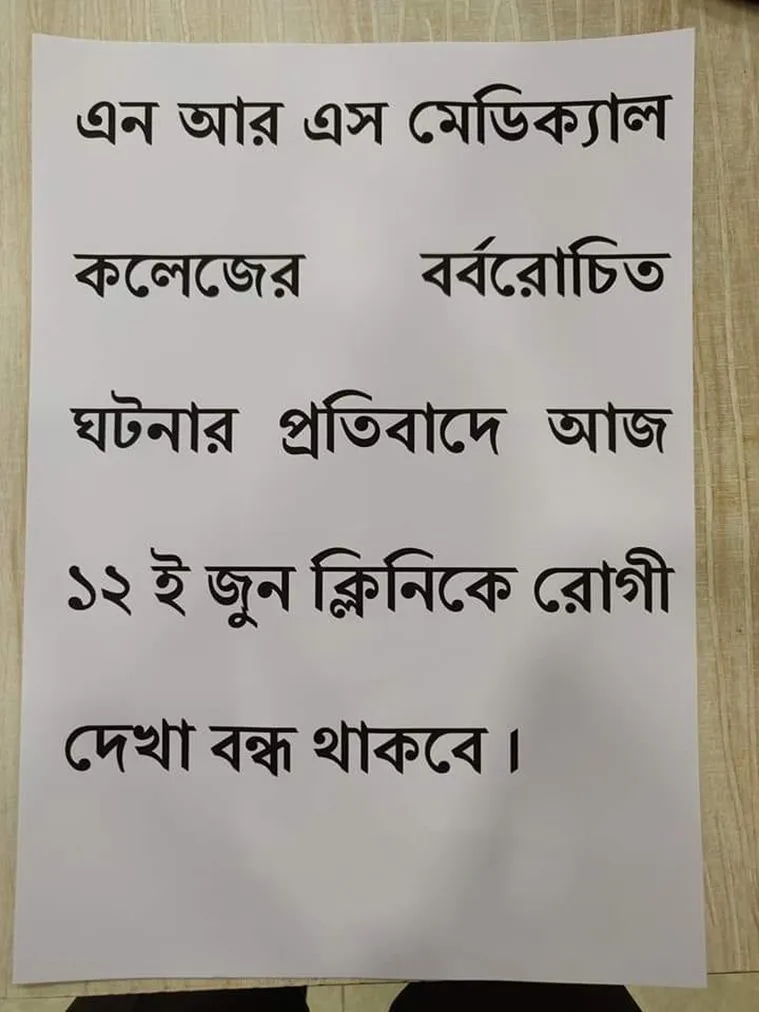 এন আর এস মেডিক্যাল
কলেজের বর্বরোচিত
ঘটনার প্রতিবাদে আজ
১২ ই জুন ক্লিনিকে রোগী
দেখা বন্ধ থাকবে ।